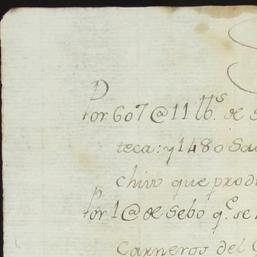 Por 607 @ 11 lbs. de s
teca: y 1480 Sa
chiv que prod
Por 1 @ de Sebo q.e se
Carneros del C